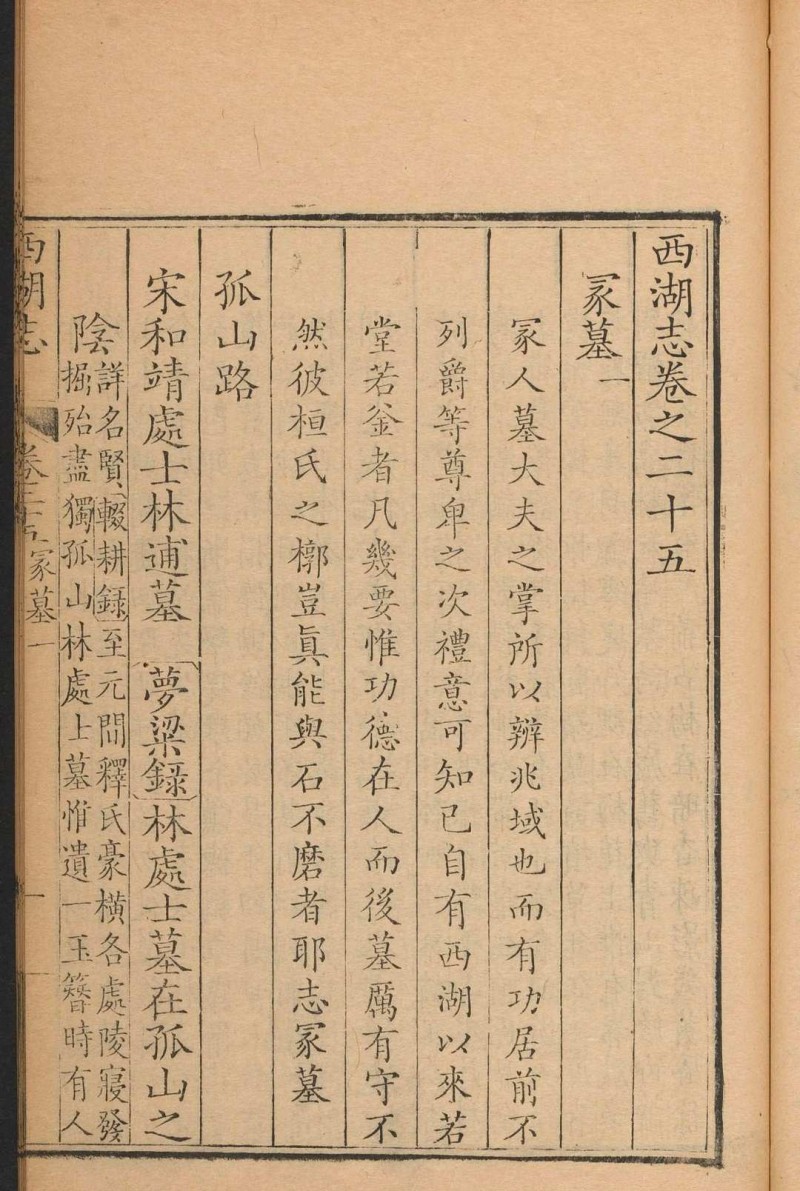 西湖志卷之二十五
冢墓一
冢人墓大夫之掌所以辨兆域也而有功居前不
列爵等尊卑之次禮意可知已自有西湖以來若
堂若釜者凡幾要惟功德在人而後墓厲有守不
然彼桓氏之槨豈眞能與石不磨者耶志冢墓
孤山路
宋和靖處士林逋墓 夢梁錄林處士墓在孤山之
陰
詳名賢輟耕録至元間釋氏豪橫各處陵寢發
掘殆盡獨孤山林處士墓惟遺一玉簪時有人
西湖志 卷二十五 冢墓一 一